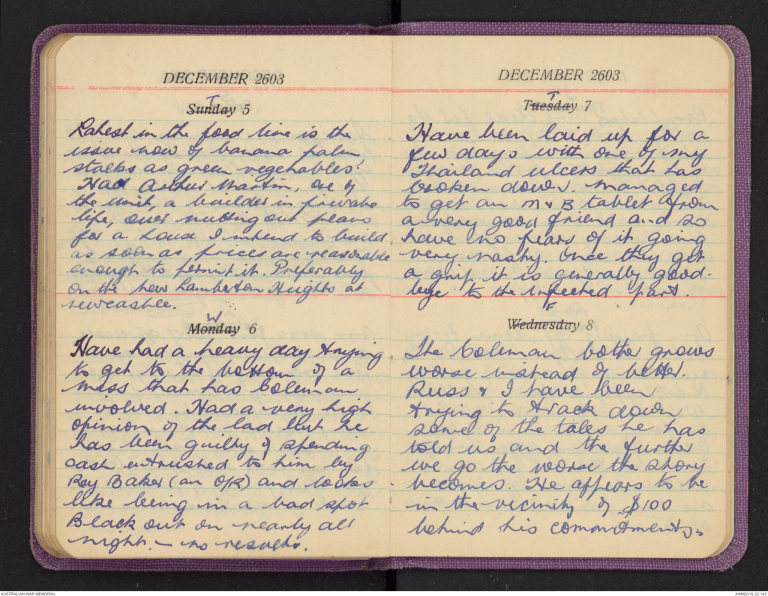 DECEMBER 2603
T
Sunday 5
Latest in the food line is the
issue now of banana palm
stalks as green vegetables!
Had Arthur Martin, one of
the unit, a builder in private
life, over nutting out plans
for a house I intend to build
as soon as prices are reasonable
enough to permit it. Preferably
on the New Lambton Heights at
Newcastle.
W
Monday 6
Have had a heavy day trying
to get to the bottom of a
mess that has Coleman
involved. Had a very high
opinion of the lad but he
has been guilty of spending
cash entrusted to him by
Roy Baker (an O/R) and looks
like being in a bad spot
Black out on nearly all
night. – no results.
DECEMBER 2603
T
Tuesday 7
Have been laid up for a
few days with one of my
Thailand ulcers that has
broken down. Managed
to get an M & B tablet from
a very good friend and so
have no fears of it going
very nasty. Once they get
a grip it is generally good-
bye to the infected part.
F
Wednesday 8
The Coleman bother grows
worse instead of better.
Russ & I have been
trying to track down
some of the tales he has
told us and the further
we go the worse the story
becomes. He appears to be
in the vicinity of $100
behind his commitments.
AUSTRALIAN WAR MEMORIAL